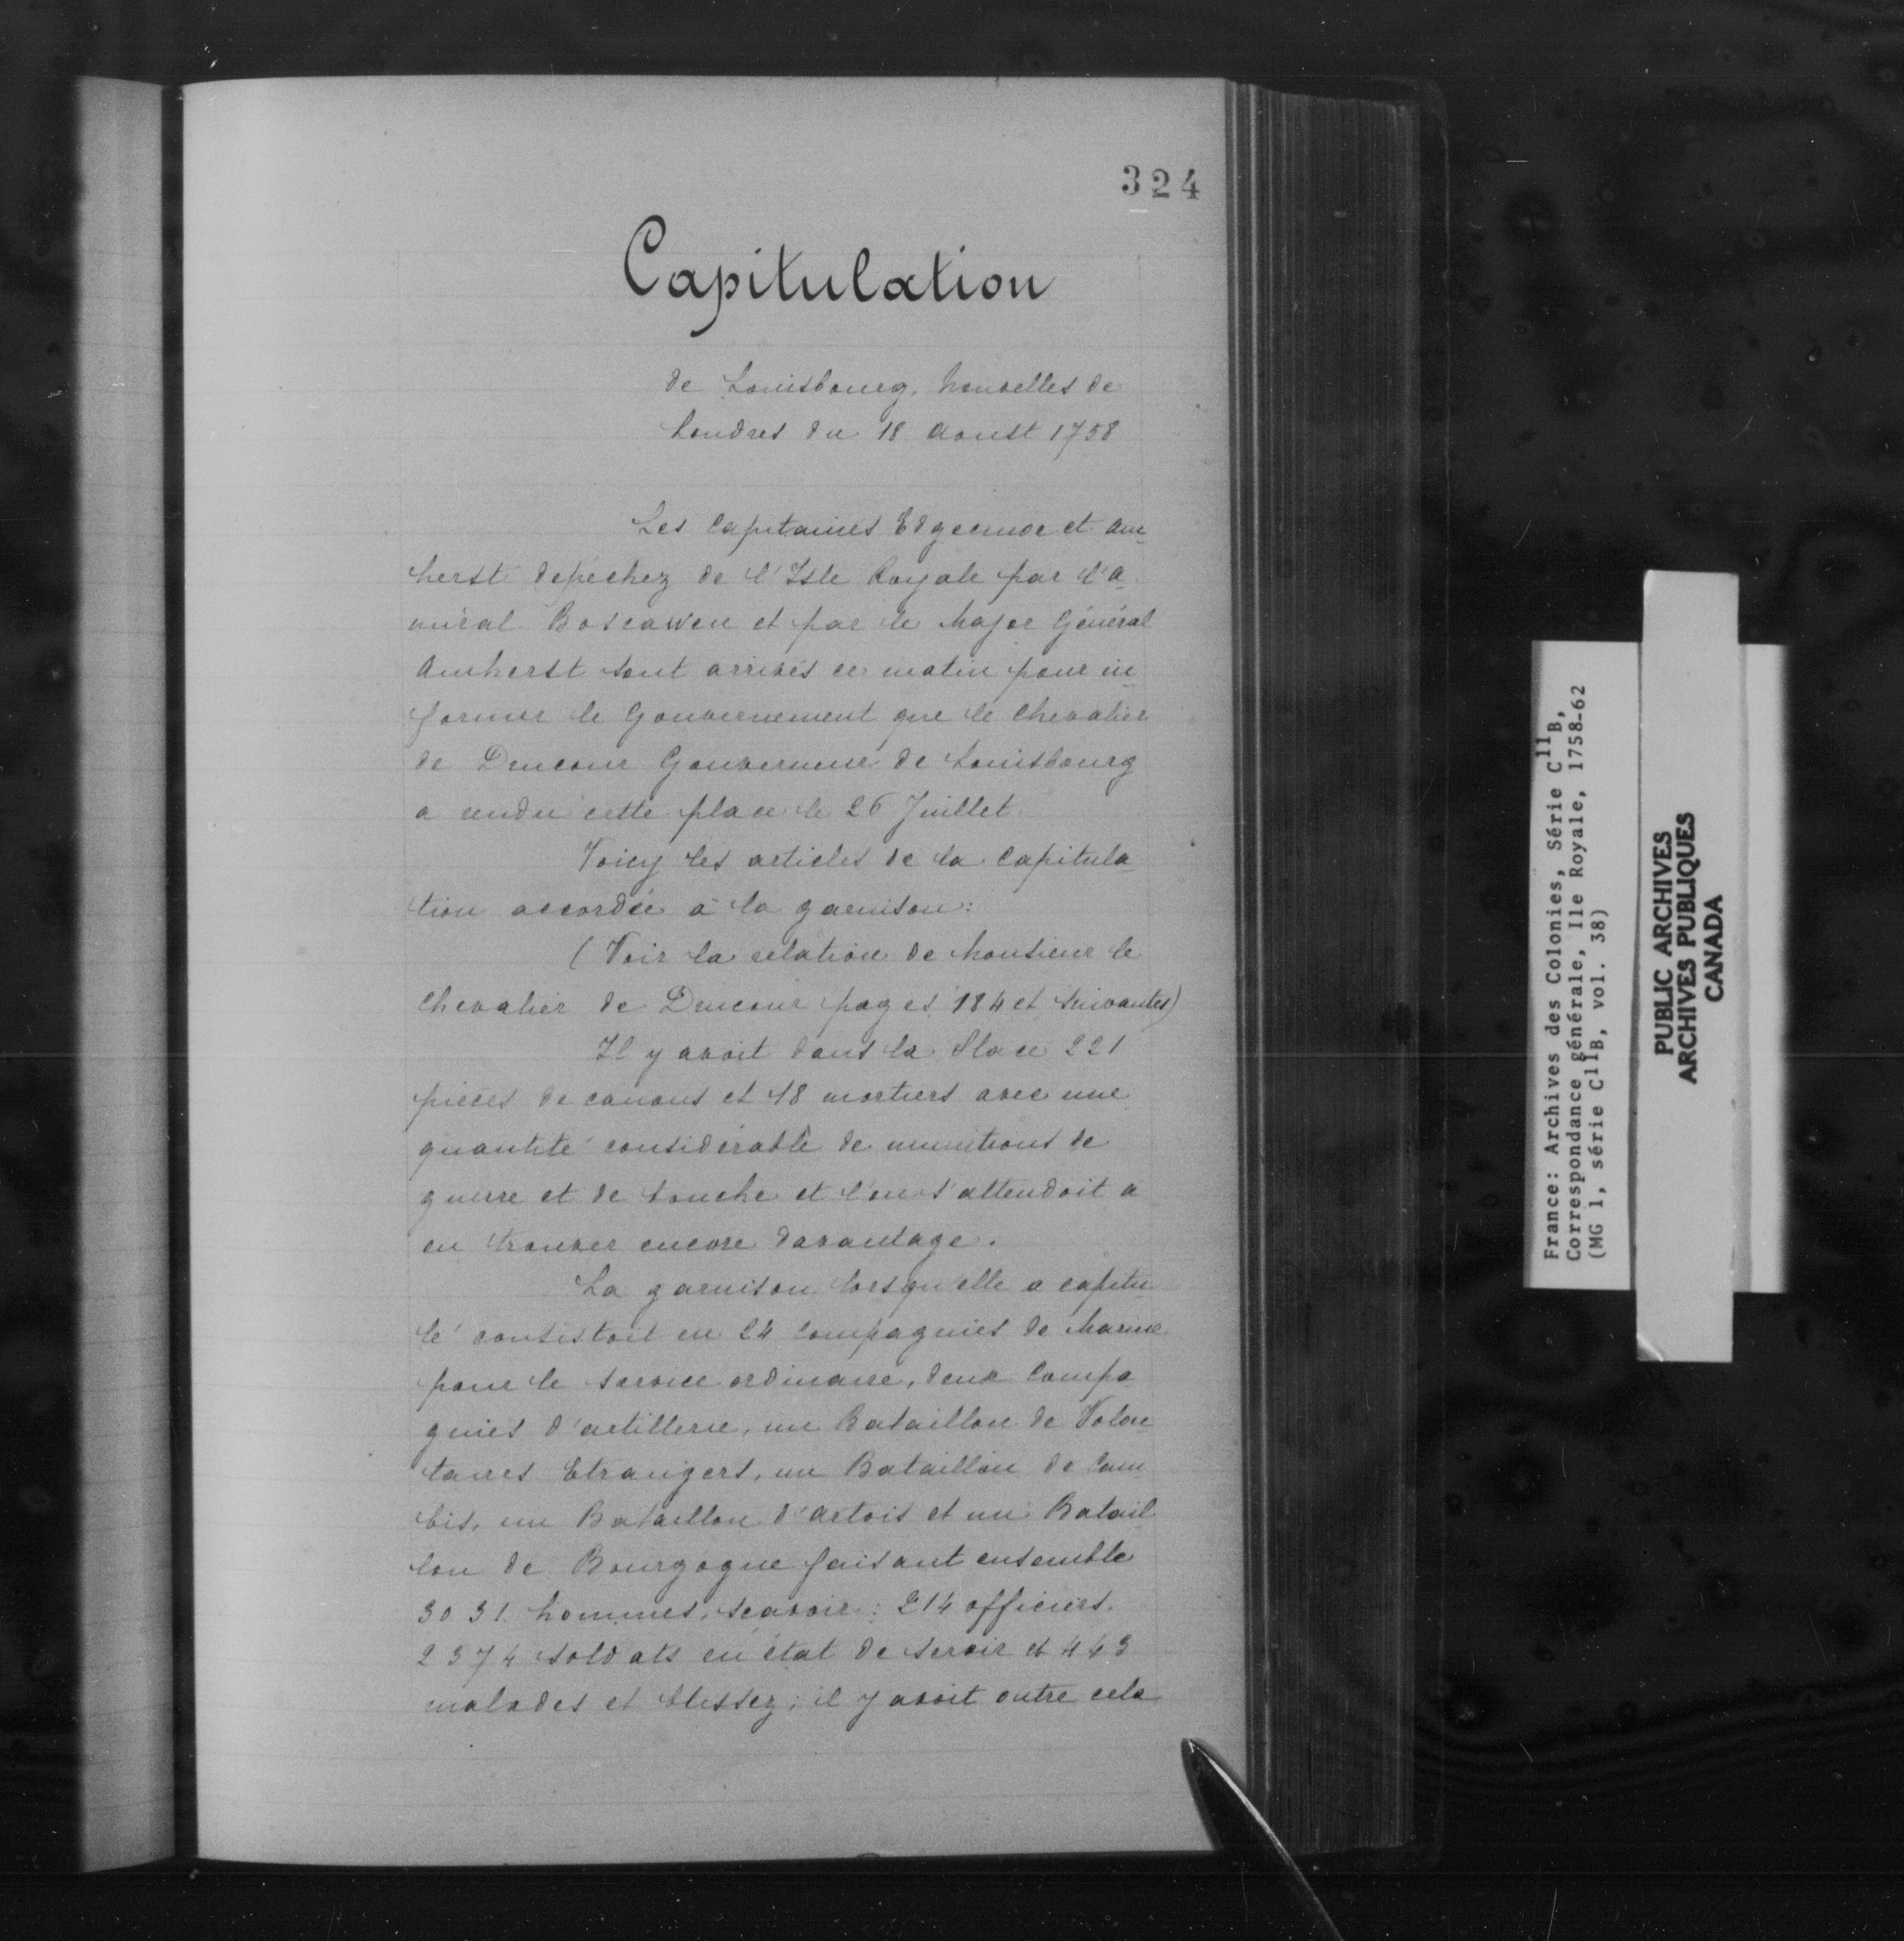 324
Capitulation
de Louisbourg. Nouvelles de
Londres du 18 Aoust 1758
Les Capitaines Edgecumoe et Am-
herst depêchez de l'Isle Royale par l'A-
miral Boscawen et par le Major Général
Amherst sont arrivés ce matin pour in-
former le Gouvernement que le Chevalier
de Drucour Gouverneur de Louisbourg
a rendu cette place le 26 Juillet.
Voicy les articles de la Capitula-
tion accordée à la garnison:
(Voir la relation de Monsieur le
Chevalier de Drucour pages 184 et suivantes)
Il y avoit dans la Place 221
pièces de canons et 18 mortiers avec une
quantité considérable de munitions de
guerre et de bouche et l'on s'attendoit a
en trouver encore davantage.
La garnison lorsqu'elle a capitu-
lé consistoit en 24 Compagnies de Marine
pour le service ordinaire, deux Compa-
gnies d'artillerie, un Bataillon de Volon-
taires Etrangers, un Bataillon de Cam-
bis, un Bataillon d'Artois et un Batail-
lon de Bourgogne faisant ensemble
3031 hommes, scavoir: 214 officiers.
2374 soldats en état de servir et 443
malades et blessez; il y avoit outre cela
France: Archives des Colonies, Série C11B,
Correspondance générale, Ile Royale, 1758-62
(MG 1, série C11B, vol. 38)
PUBLIC ARCHIVES
ARCHIVES PUBLIQUES
CANADA